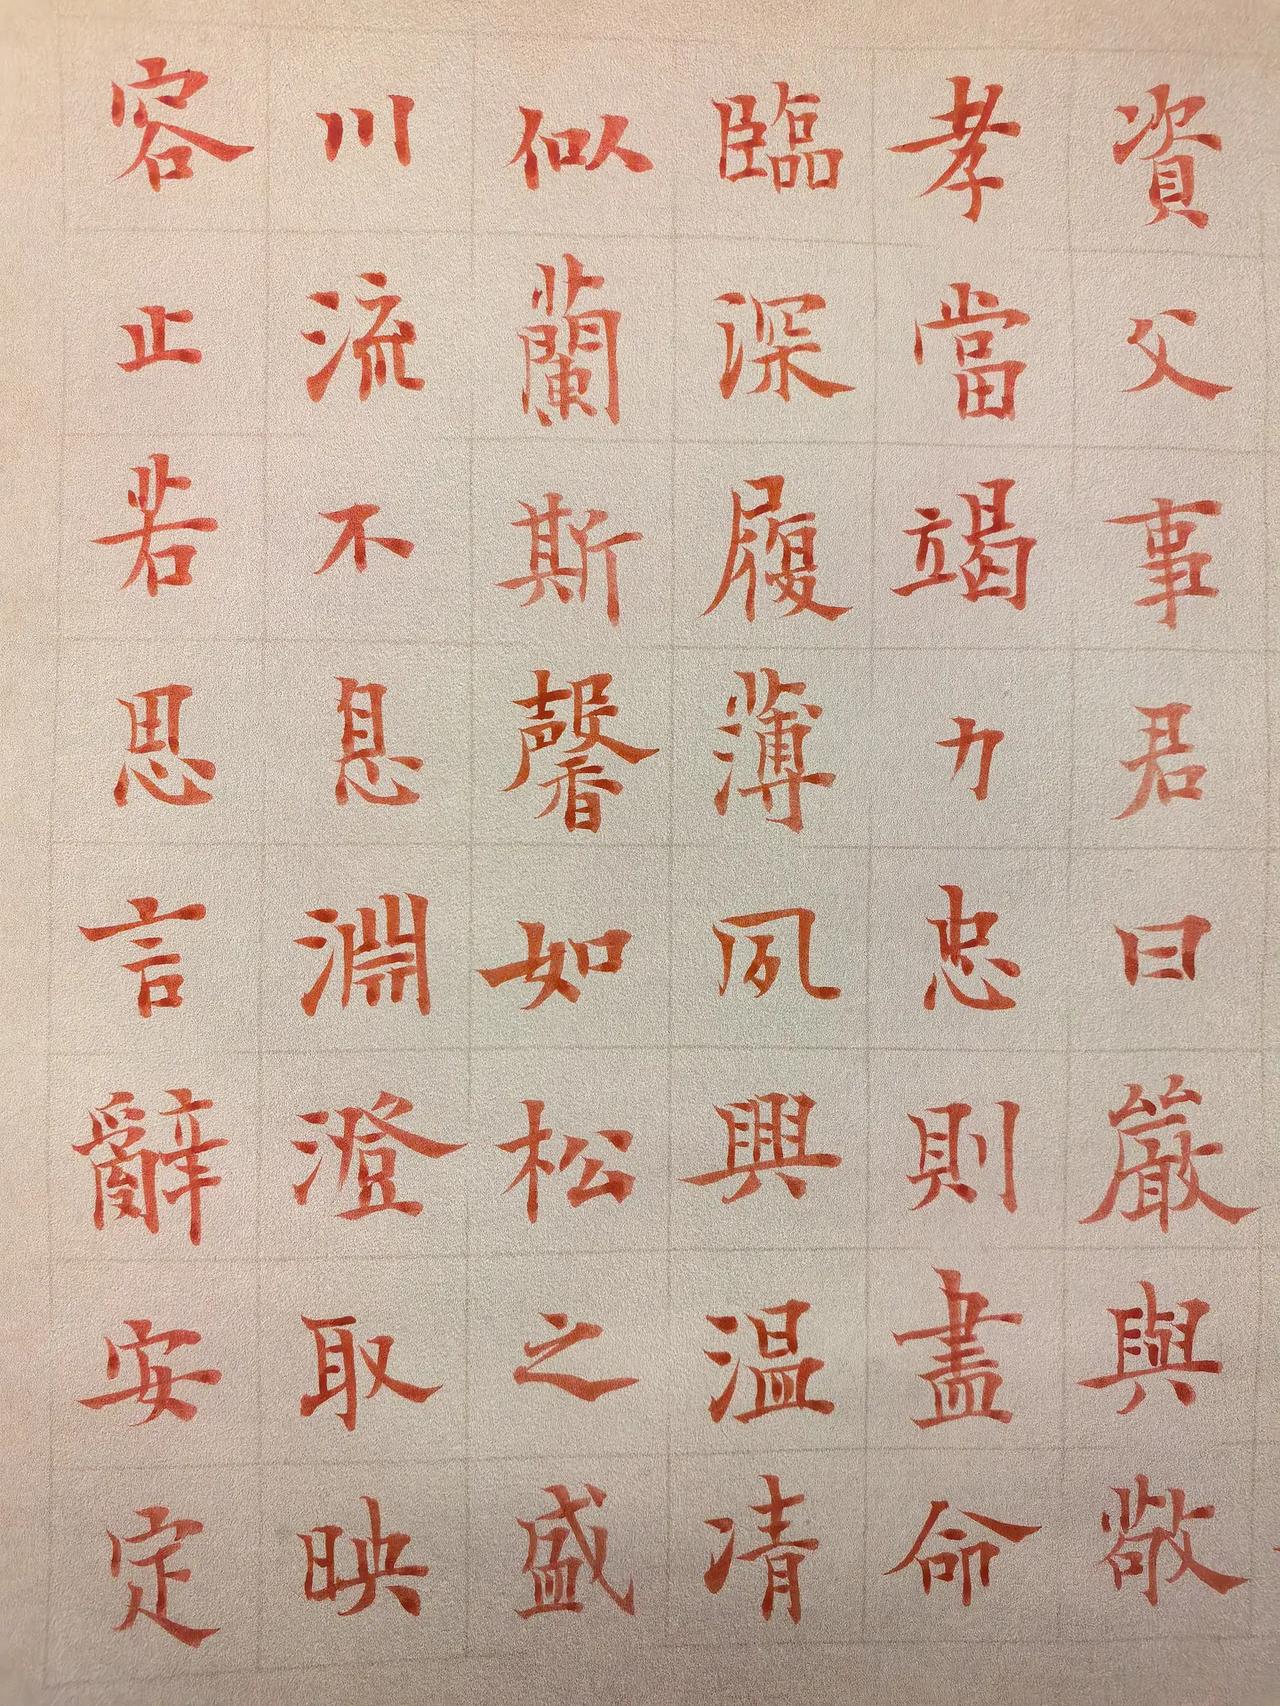 資父事君曰嚴與敬
孝當竭力忠則盡命
臨深履薄夙興温凊
似蘭斯馨如松之盛
川流不息淵澄取映
容止若思言辭安定